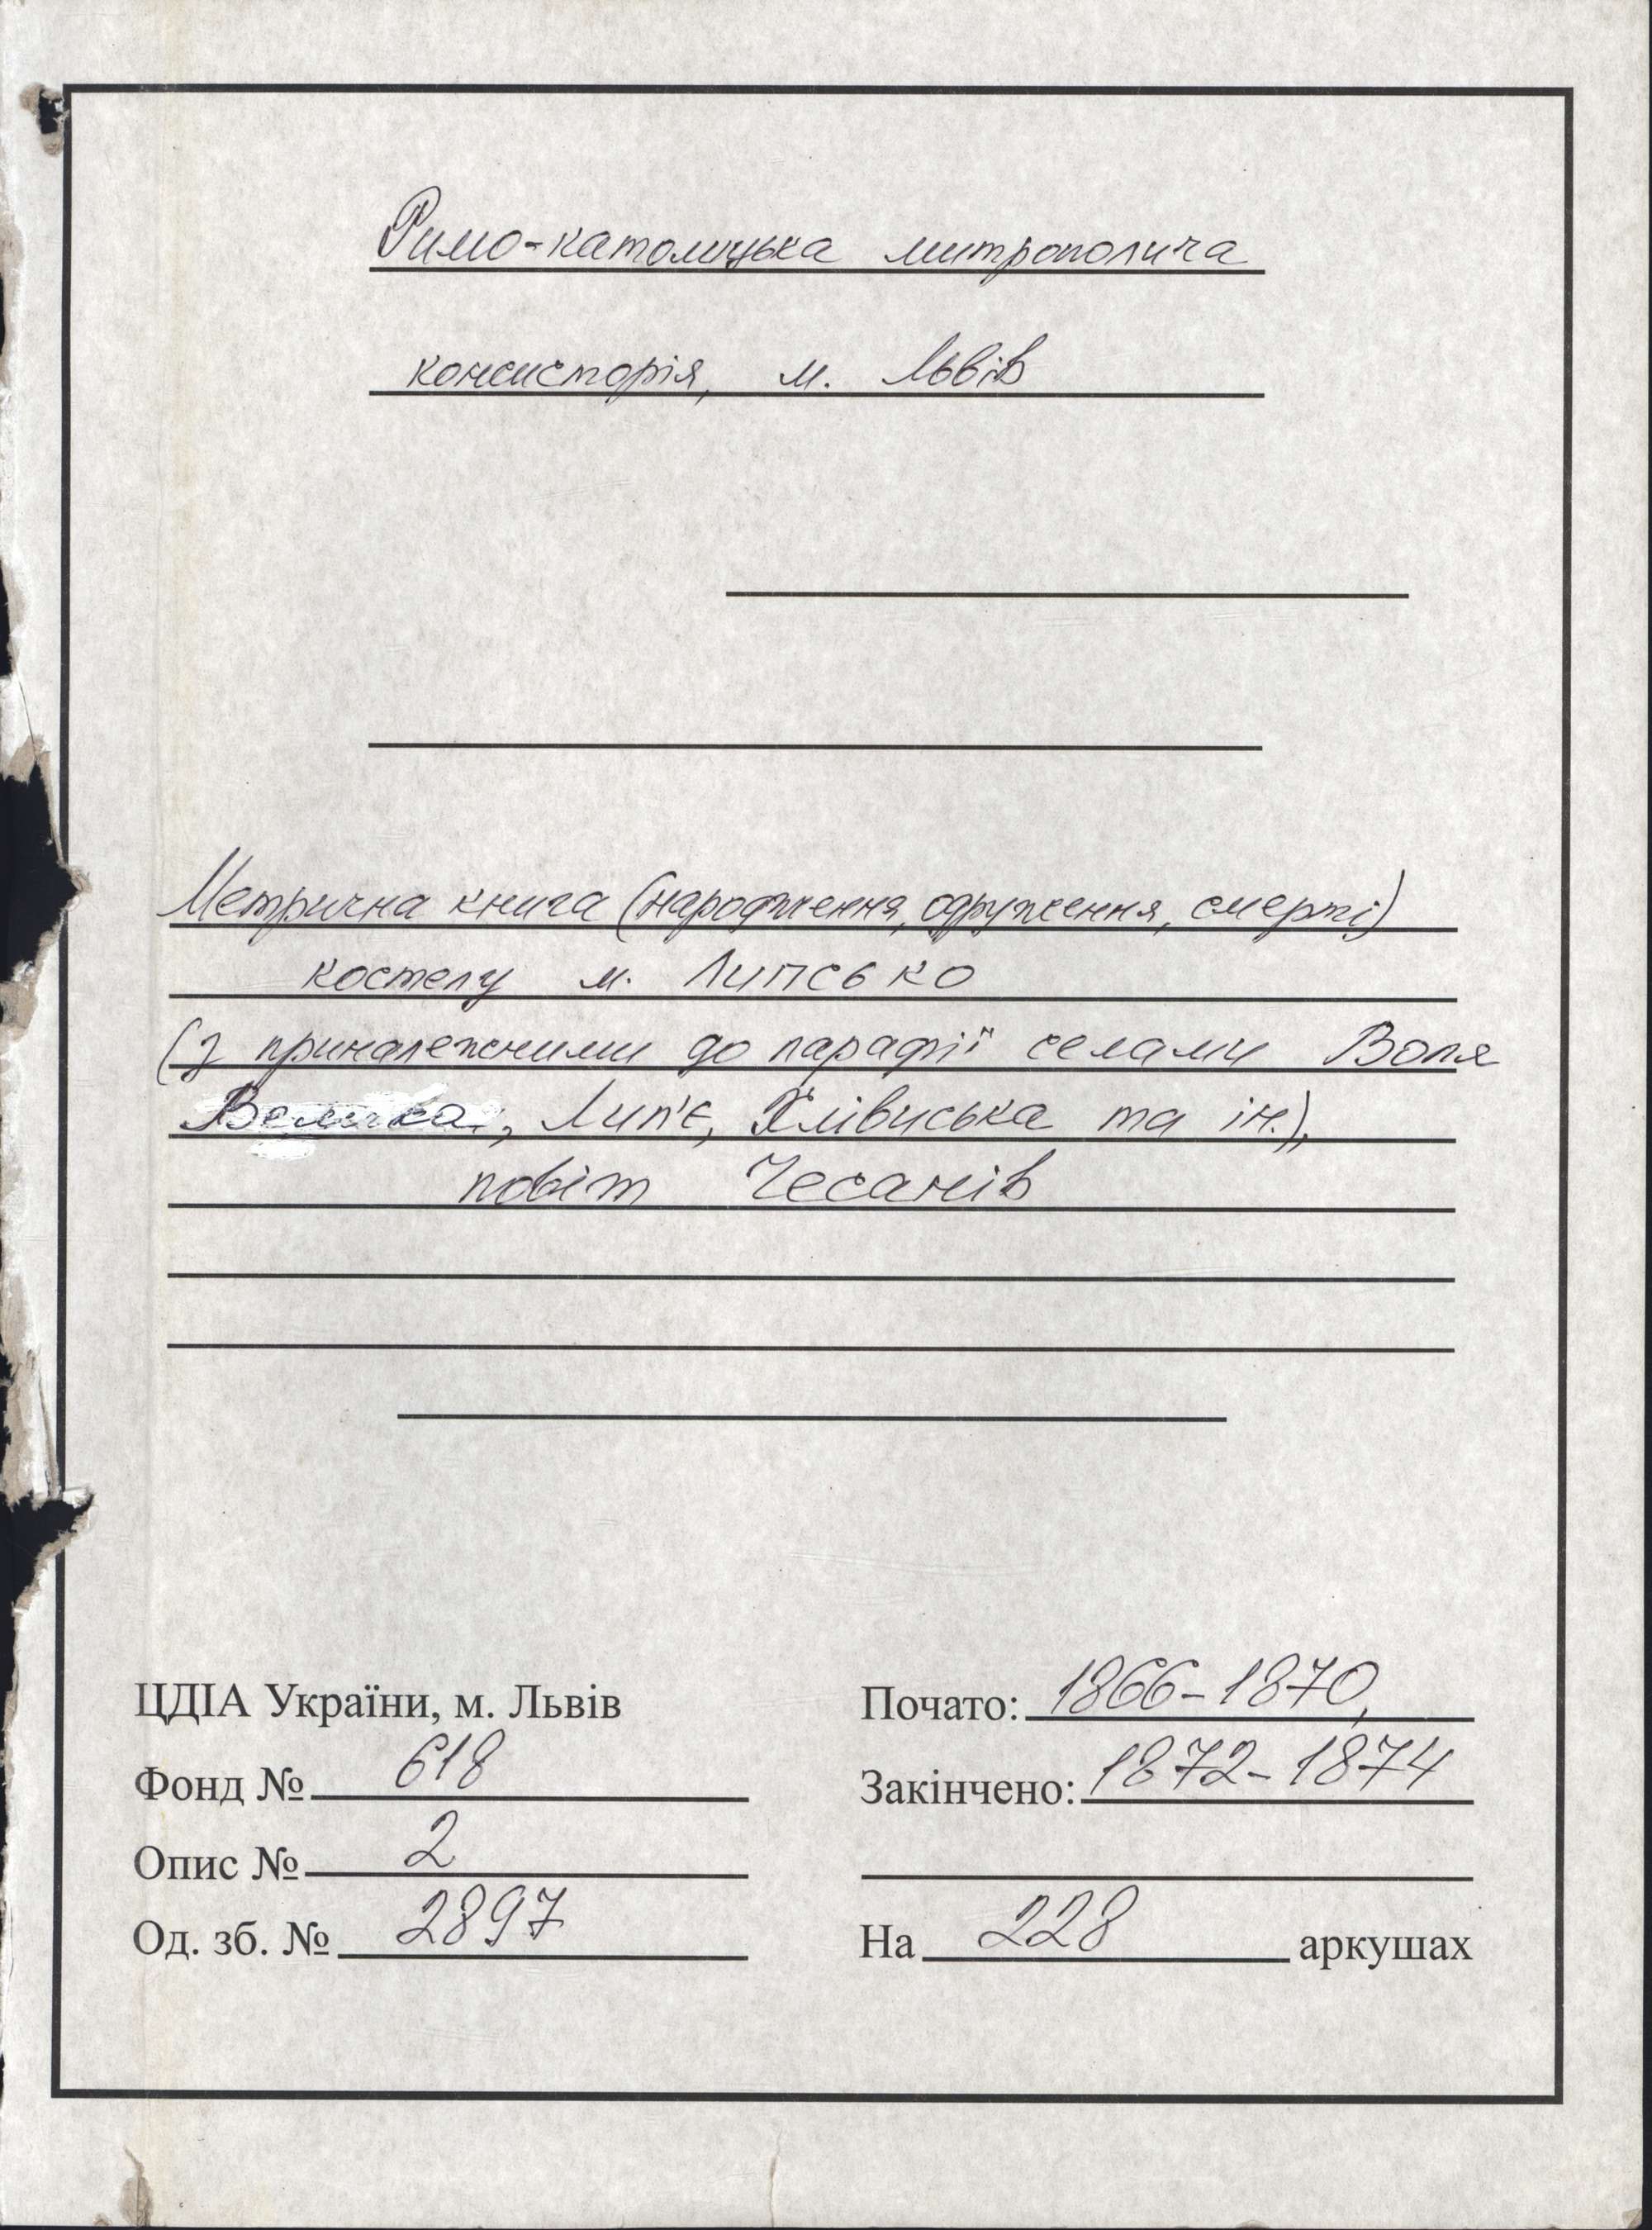 Римо-католицька митрополича
консисторія, м. Львів
Метрична книга (народження, одруження, смерті)
костелу м. Липсько
(з приналежними до парафії селами Воля
Велика, Лип'є, Хлівиська та ін.),
повіт Чесанів
ЦДІА України, м. Львів
Почато: 1866-1870,
Фонд № 618
Закінчено: 1872-1874
Опис № 2
Од. зб. № 2897
На 228 аркушах